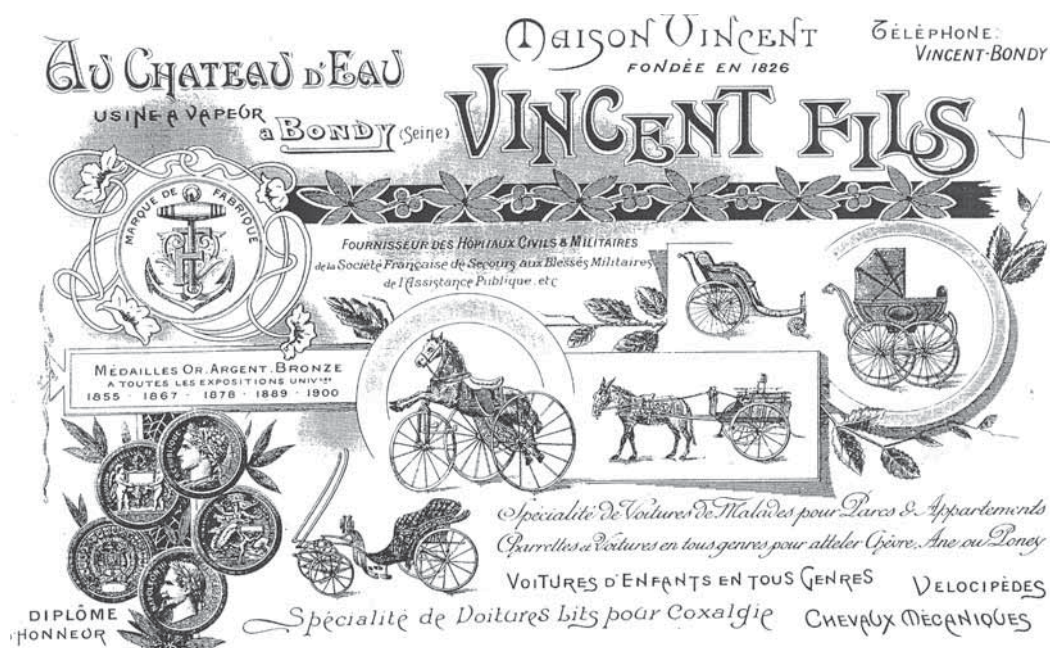 AU CHATEAU D'EAU
USINE A VAPEUR
à BONDY (Seine)
MAISON VINCENT
FONDÉE EN 1826
VINCENT FILS
TÉLÉPHONE:
VINCENT-BONDY
MARQUE DE FABRIQUE
FOURNISSEUR DES HÔPITAUX CIVILS & MILITAIRES
de la Société Française de Secours aux Blessés Militaires
de l'Assistance Publique, etc
MÉDAILLES OR. ARGENT. BRONZE
A TOUTES LES EXPOSITIONS UNIVlles
1855 · 1867 · 1878 · 1889 · 1900
Spécialité de Voitures de Malades pour Parcs & Appartements
Charrettes et Voitures en tous genres pour atteler Chèvre, Ane ou Poney
VOITURES D'ENFANTS EN TOUS GENRES
VELOCIPÈDES
Spécialité de Voitures Lits pour Coxalgie
CHEVAUX MÉCANIQUES
DIPLÔME
D'HONNEUR